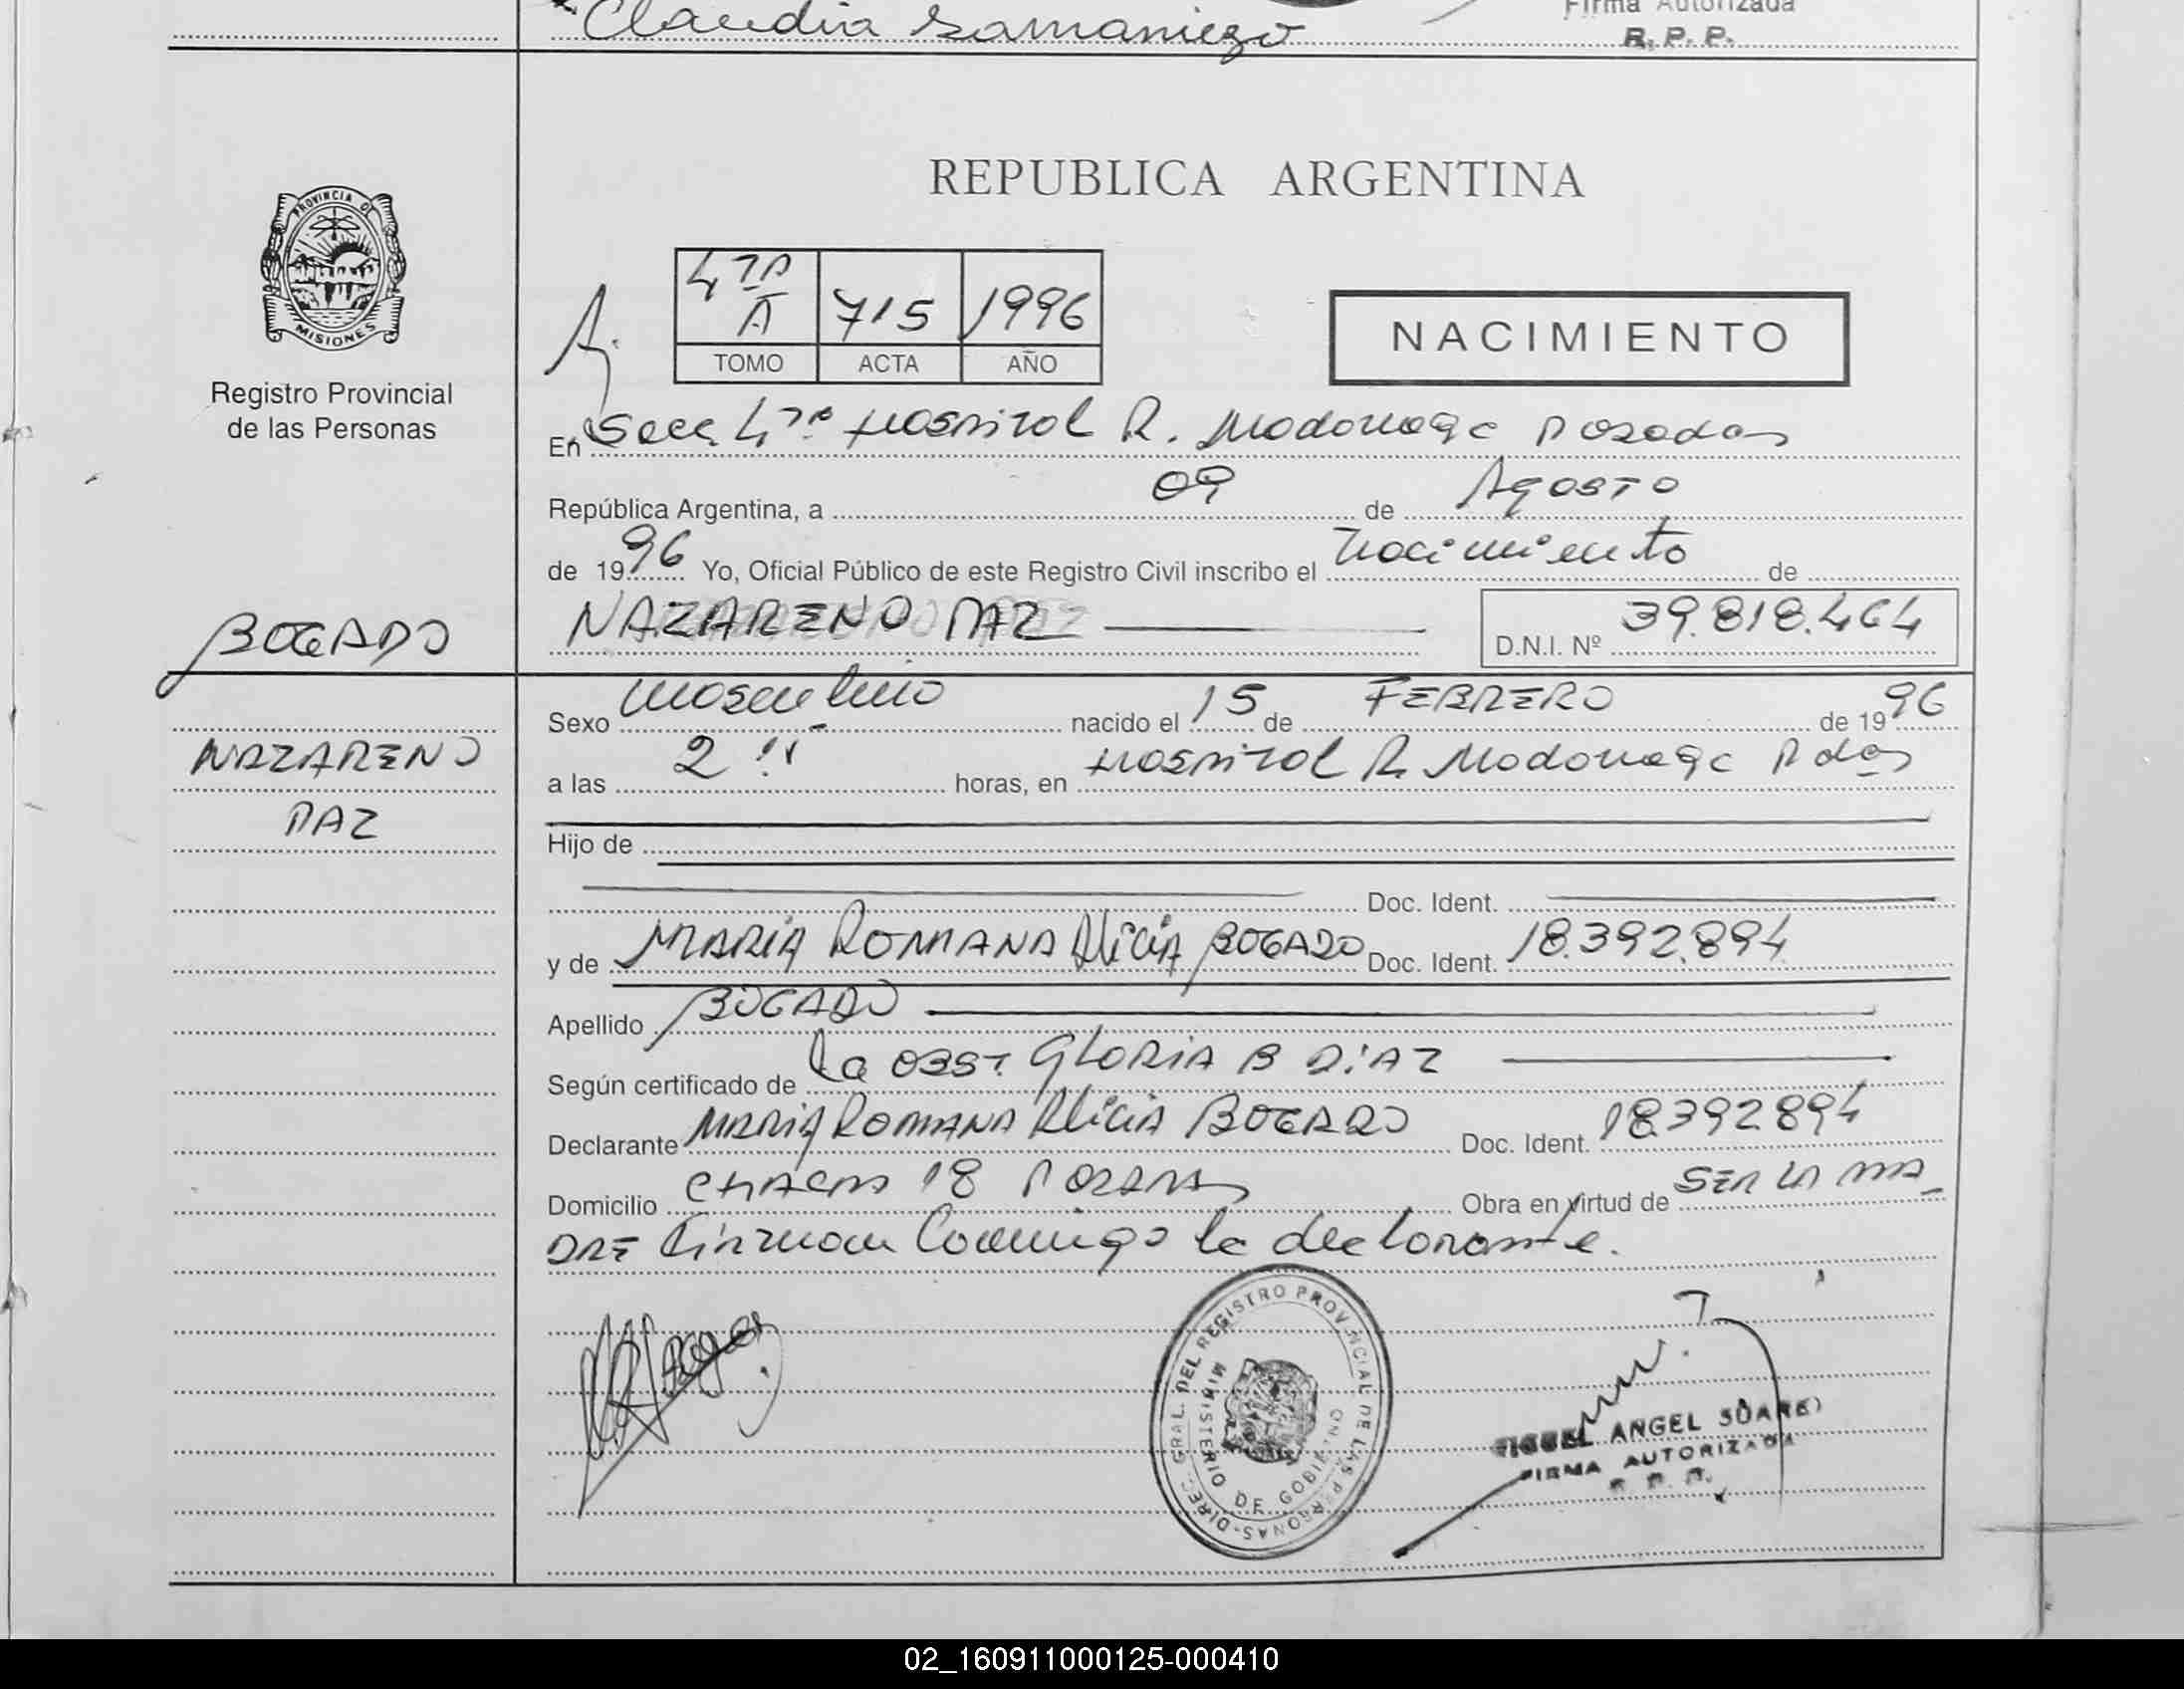 Claudia Samaniego
Firma Autorizada
R. P. P.
PROVINCIA DE
MISIONES
Registro Provincial
de las Personas
REPUBLICA ARGENTINA
4ta A 715 1996
TOMO ACTA AÑO
NACIMIENTO
En Secc. 4ta Hospital R. Madariaga Posadas
República Argentina, a 09 de Agosto
de 1996 Yo, Oficial Público de este Registro Civil inscribo el Nacimiento de
BOGADO
NAZARENO PAZ
D.N.I. Nº 39.818.464
NAZARENO
PAZ
Sexo Masculino nacido el 15 de FEBRERO de 1996
a las 2 horas, en Hospital R. Madariaga Pdas
Hijo de
Doc. Ident.
y de MARIA ROMANA ALICIA BOGADO Doc. Ident. 18.392.894
Apellido BOGADO
Según certificado de La OBST. GLORIA B DIAZ
Declarante MARIA ROMANA ALICIA BOGADO Doc. Ident. 18392894
Domicilio CHACRA 18 POSADAS Obra en virtud de SER LA MA_
DRE Firman Conmigo la declarante.
DIREC. GRAL. DEL REGISTRO PROVINCIAL DE LAS PERSONAS
MINISTERIO DE GOBIERNO
MIGUEL ANGEL SUAREZ
FIRMA AUTORIZADA
R. P. P.
02_160911000125-000410